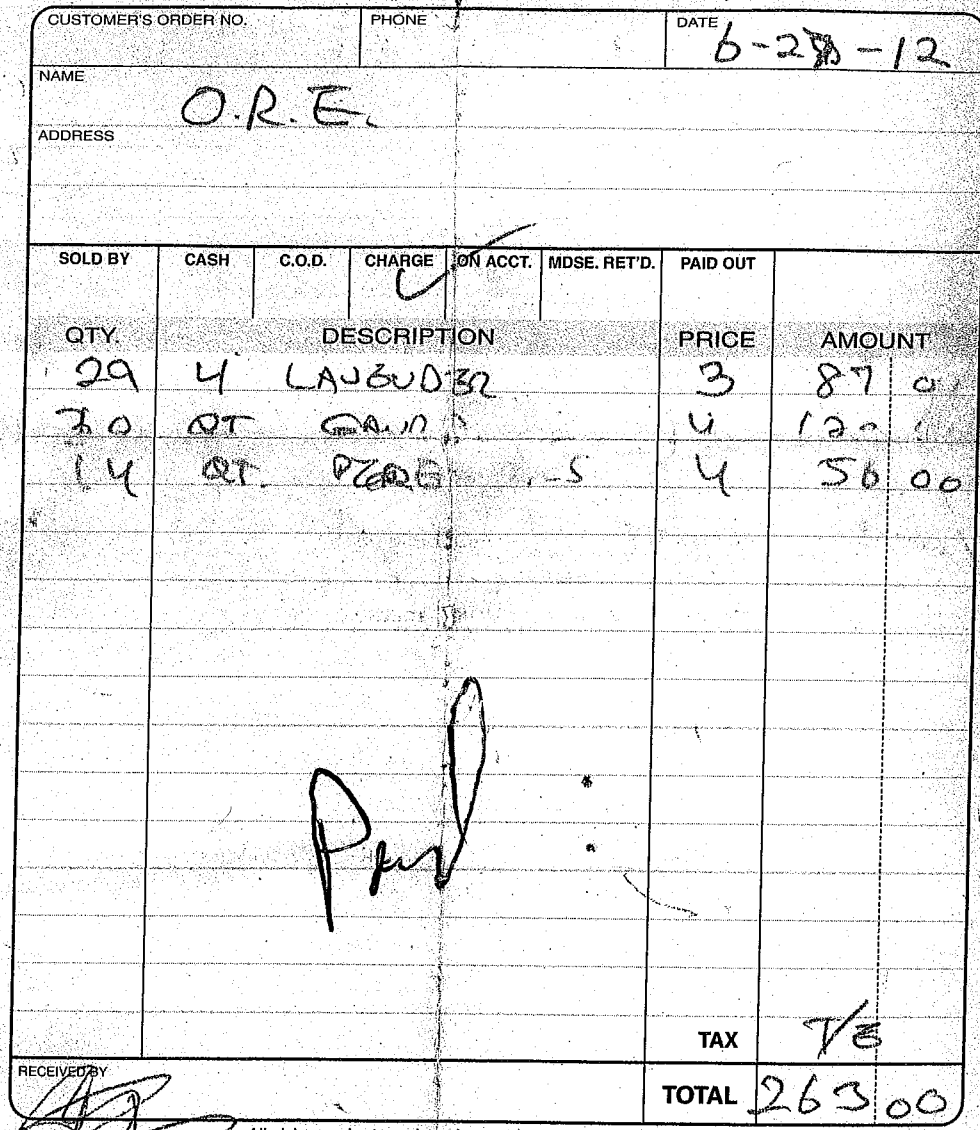 CUSTOMER'S ORDER NO. PHONE DATE
6-2 -12
NAME
O.R.E.
ADDRESS
SOLD BY CASH C.O.D. CHARGE ON ACCT. MDSE. RET'D. PAID OUT
QTY. DESCRIPTION PRICE AMOUNT
29 4 3 87 0
30 QT 4 120
14 QT. 4 56 00
Paid
TAX T/E
RECEIVED BY
TOTAL 263 00